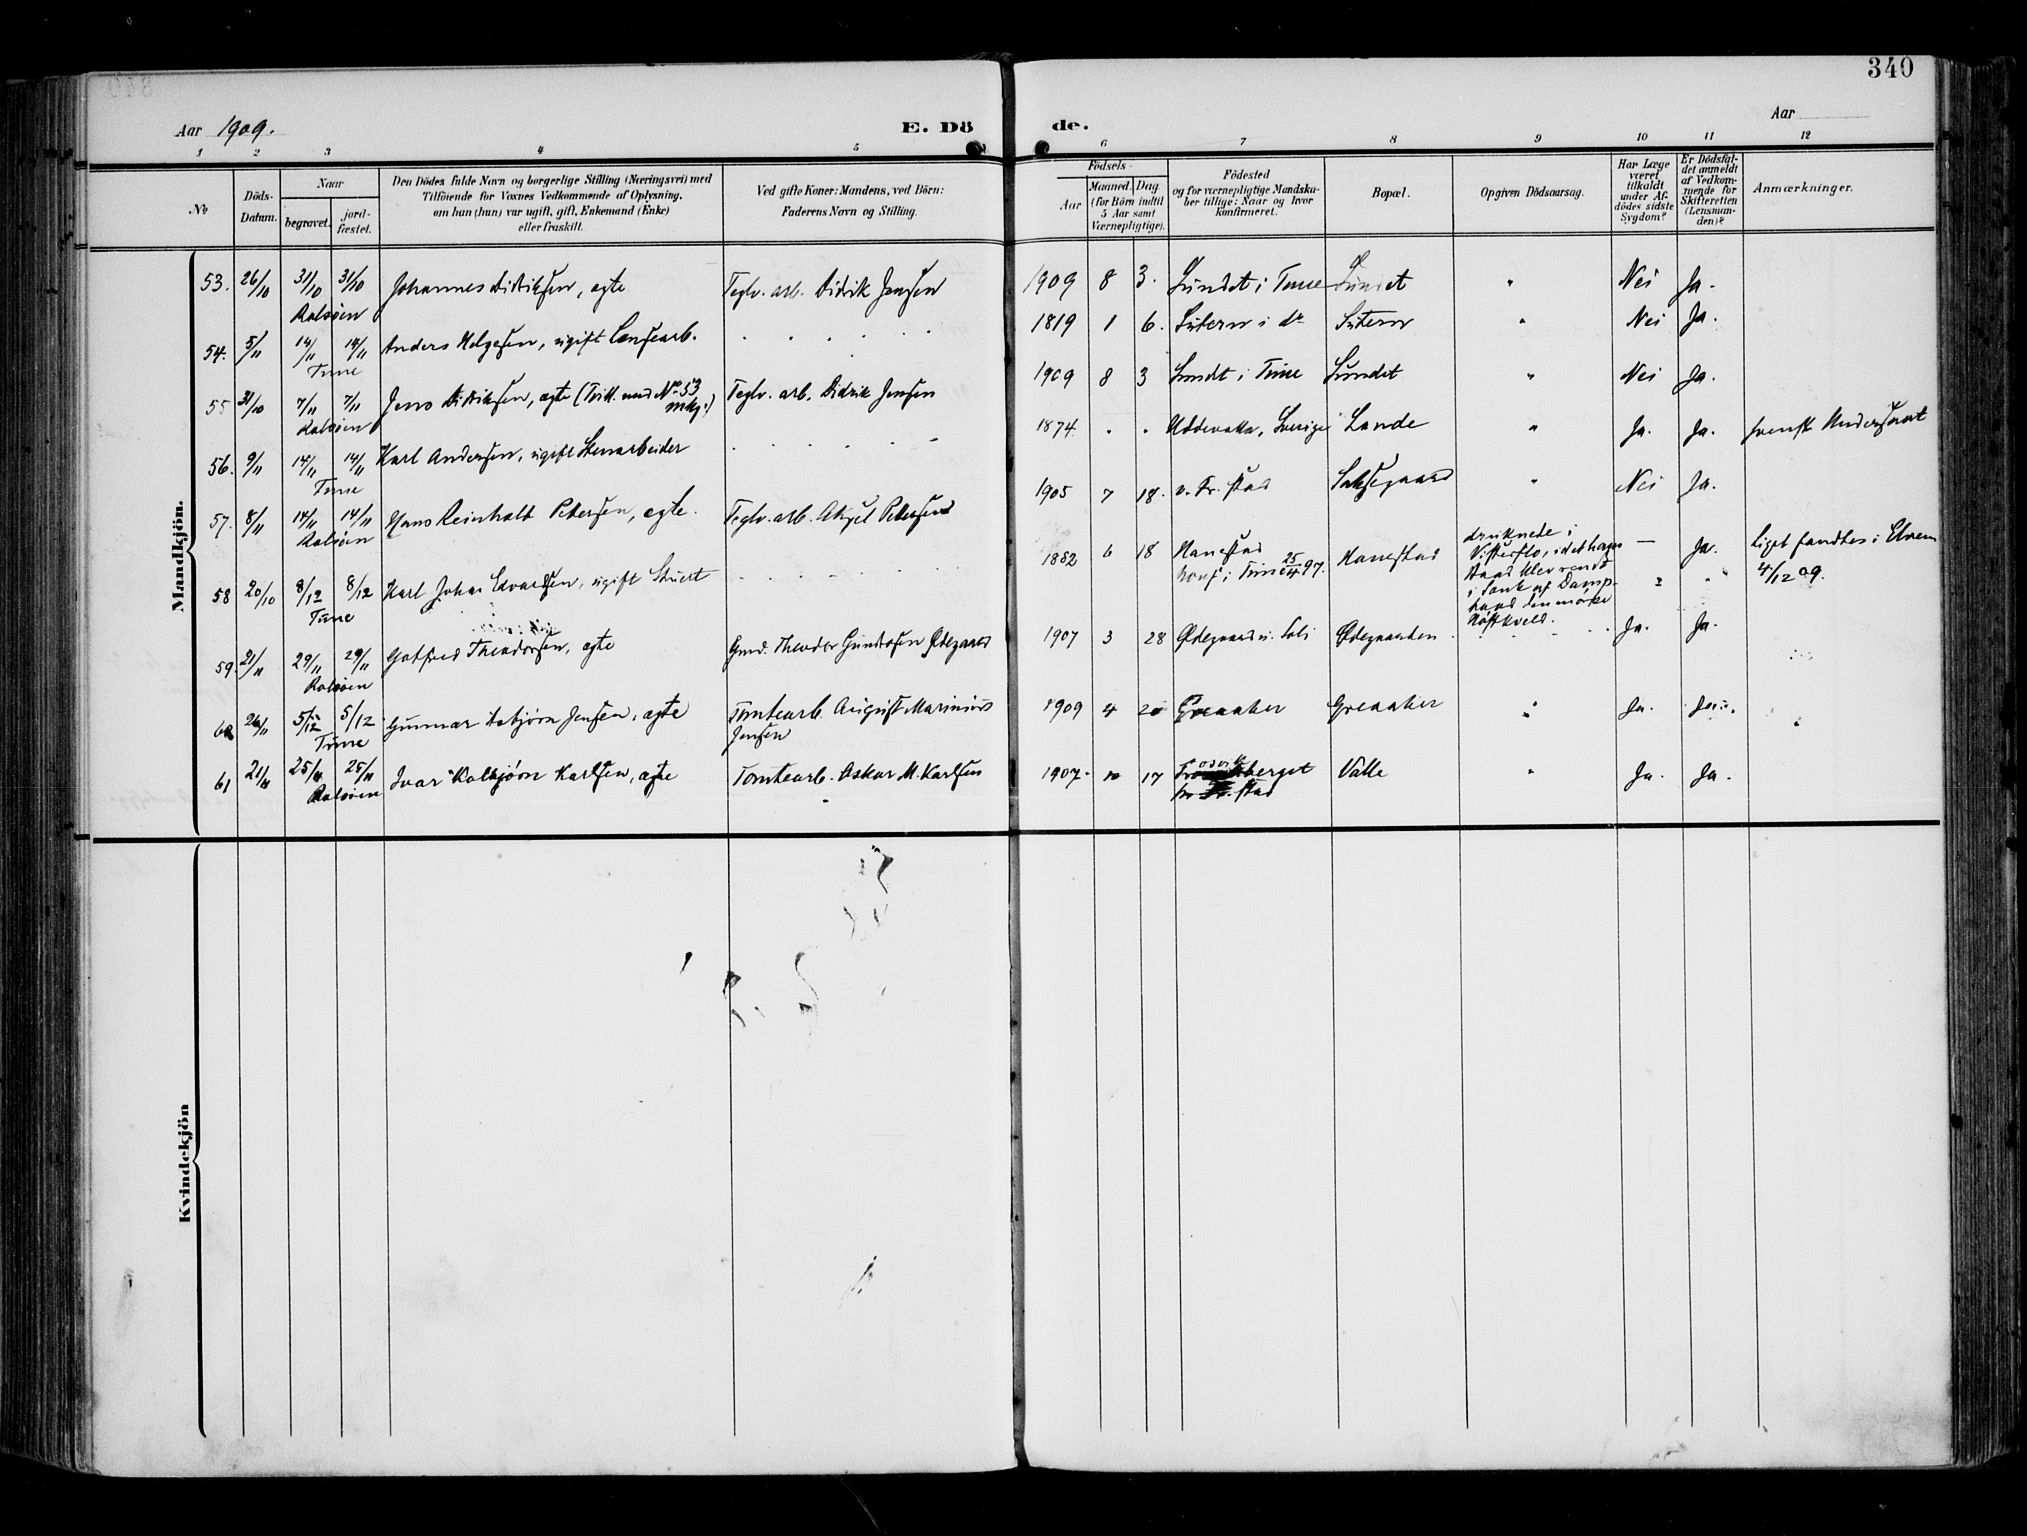 340
Aar 1909.
E. Dö de.
Aar
1 2 3 4 5 6 7 8 9 10 11 12
No
Döds-Datum.
Naar
begravet.
jord-fæstet.
Den Dödes fulde Navn og borgerlige Stilling (Næringsvei) med
Tilföiende for Voxnes Vedkommende af Oplysning,
om han (hun) var ugift, gift, Enkemand (Enke)
eller fraskilt.
Ved gifte Koner: Mandens, ved Börn:
Faderens Navn og Stilling.
Födsels-
Aar
Maaned. Dag.
(for Börn indtil
5 Aar samt
Værnepligtige).
Födested
og for værnepligtige Mandska-
ber tillige: Naar og hvor
konfirmeret.
Bopæl.
Opgiven Dödsaarsag.
Har Læge
været
tilkaldt
under Af-
dödes sidste
Sygdom?
Er Dödsfal-
det anmeldt
af Vedkom-
mende for
Skifteretten
(Lensman-
den)?
Anmærkninger.
Mandkjön.
53. 26/10 31/10 31/10 Johannes Didriksen, ægte Teglv. arb. Didrik Jensen 1909 8 3. Sundet i Tune Sundet " Nei Ja.
Rolsøen
54. 5/11 14/11 14/11 Anders Helgesen, ugift Lænsearb. 1819 1 6. Sutern i do Sutern " Nei Ja.
Tune
55 31/10 7/11 7/11 Jens Didriksen, ægte (Tvill. med No 53 mkj.) Teglv. arb. Didrik Jensen 1909 8 3 Sundet i Tune Sundet " Nei Ja.
Rolsøen
56. 9/11 14/11 14/11 Karl Andersen, ugift Stenarbeider 1874 " " Uddevalla, Sverige Lande " Ja. Ja. svensk Undersaat
Tune
57. 8/11 14/11 14/11 Hans Reinholdt Petersen, ægte. Teglv. arb. Aksel Petersen 1905 7 18. v. Fr. stad " Nei Ja.
Rolsøen
58 20/10 8/12 8/12 Karl Johan Edvardsen, ugift 1882 6 18 Hanestad
konf. i Tune 25/4 97. Hanestad druknede i
Visterflo, idet hans
Baad blev rendt
i Sank af Damp-
baad den mørke
Høstkveld. — Ja. Liget fandtes i Elven
4/12 09.
Tune
59. 21/11 29/11 29/11 Gotfred Theodorsen, ægte Gmd. Theodor Gundersen Ødegaard 1907 3 28 Ødegaard u. Soli Ødegaarden Ja. Ja.
Rolsøen
60 26/11 5/12 5/12 Gunnar Asbjørn Jensen, ægte Tomtearb. August Marinius
Jensen 1909 4 20 Greaaker Greaaker " Ja. Ja.
Tune
61 21/11 25/11 25/11 Ivar Kolbjørn Karlsen, ægte Tomtearb. Oskar M. Karlsen 1907 10 17 Valle " Ja. Ja.
Rolsøen
Kvindekjön